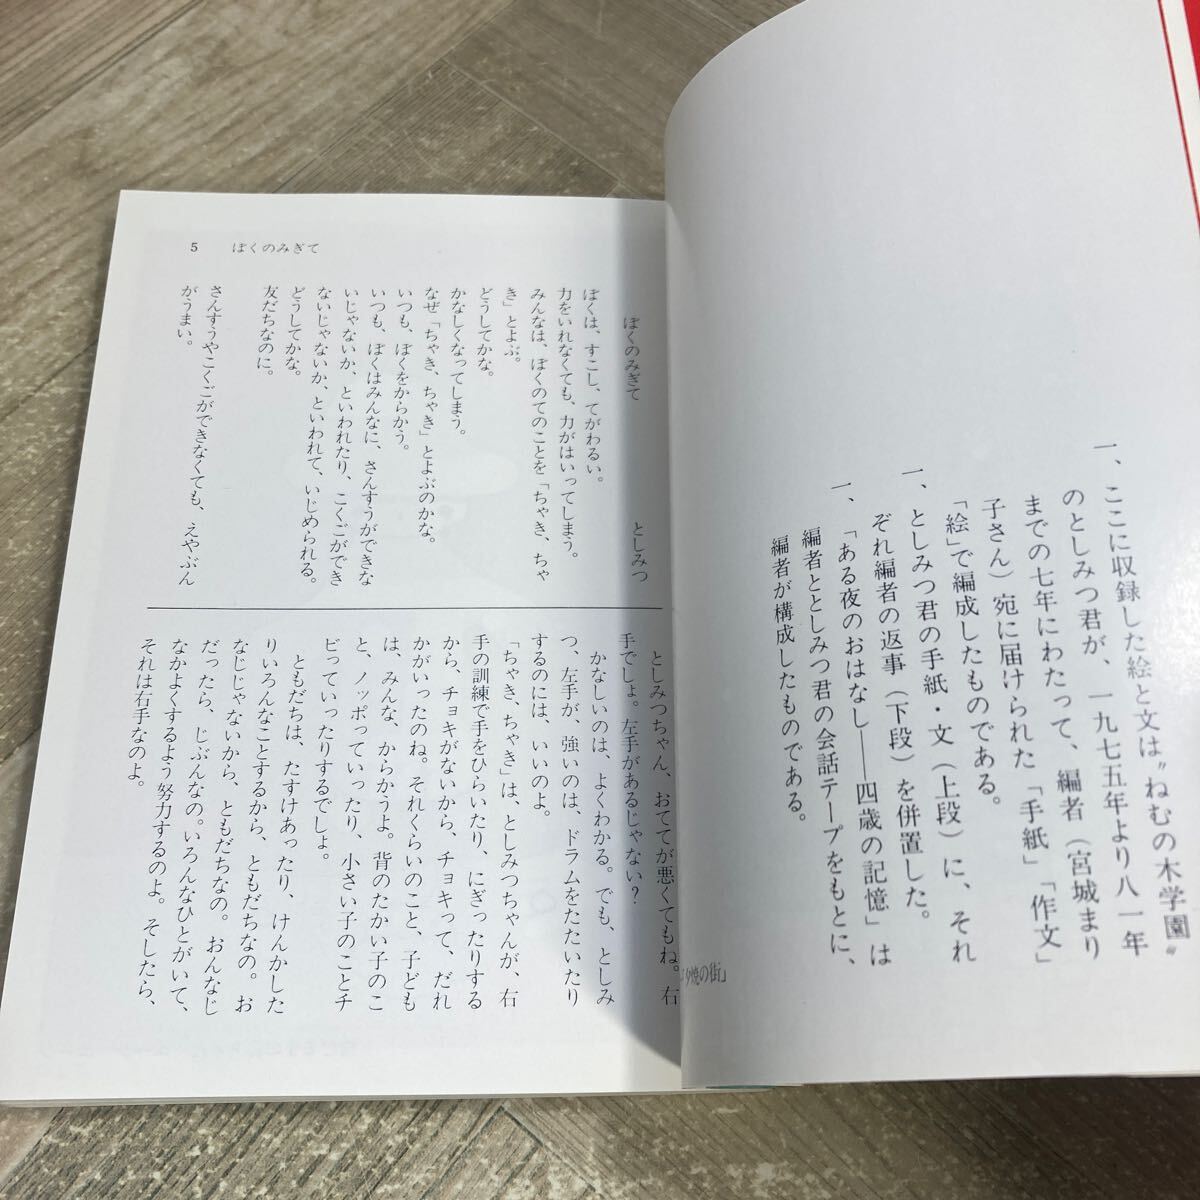 一、ここに収録した絵と文は〝ねむの木学園〟
のとしみつ君が、一九七五年より八一年
までの七年にわたって、編者（宮城まり
子さん）宛に届けられた「手紙」「作文」
「絵」で編成したものである。
一、としみつ君の手紙・文（上段）に、それ
ぞれ編者の返事（下段）を併置した。
一、「ある夜のおはなし――四歳の記憶」は
編者ととしみつ君の会話テープをもとに、
編者が構成したものである。
夕焼の街」
5　ぼくのみぎて
ぼくのみぎて
としみつ
ぼくは、すこし、てがわるい。
力をいれなくても、力がはいってしまう。
みんなは、ぼくのてのことを「ちゃき、ちゃ
き」とよぶ。
どうしてかな。
かなしくなってしまう。
なぜ「ちゃき、ちゃき」とよぶのかな。
いつも、ぼくをからかう。
いつも、ぼくはみんなに、さんすうができな
いじゃないか、といわれたり、こくごができ
ないじゃないか、といわれて、いじめられる。
どうしてかな。
友だちなのに。
さんすうやこくごができなくても、えやぶん
がうまい。
としみつちゃん、おててが悪くてもね。右
手でしょ。左手があるじゃない？
かなしいのは、よくわかる。でも、としみ
つ、左手が、強いのは、ドラムをたたいたり
するのには、いいのよ。
「ちゃき、ちゃき」は、としみつちゃんが、右
手の訓練で手をひらいたり、にぎったりする
から、チョキがないから、チョキって、だれ
かがいったのね。それくらいのこと、子ども
は、みんな、からかうよ。背のたかい子のこ
と、ノッポっていったり、小さい子のことチ
ビっていったりするでしょ。
ともだちは、たすけあったり、けんかした
りいろんなことするから、ともだちなの。お
なじじゃないから、ともだちなの。おんなじ
だったら、じぶんなの。いろんなひとがいて、
なかよくするよう努力するのよ。そしたら、
それは右手なのよ。